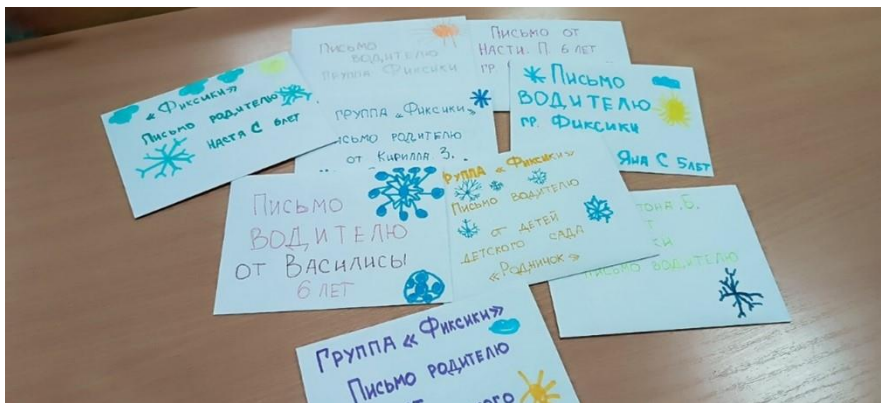 Письмо
водителю
группа Фиксики
Письмо от
Насти. П. 6 лет
гр.
«Фиксики»
Письмо родителю
Настя С 6лет
Группа «Фиксики»
Письмо родителю
от Кирилла З.
Письмо
водителю
гр. Фиксики
Яна С 5лет
Письмо
водителю
от Василисы
6 лет
Группа «Фиксики»
Письмо водителю
от детей
детского сада
«Родничок»
Письмо водителю
Группа «Фиксики»
Письмо родителю